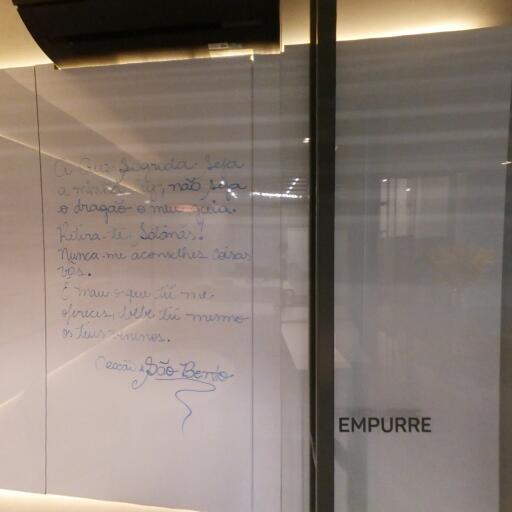 A Cruz Sagrada Seja
a minha luz, não seja
o dragão o meu guia.
Retira-te, Satanás!
Nunca me aconselhes coisas
vãs.
É mau o que tú me
ofereces, bebe tú mesmo
os teus venenos.
Oração de São Bento
EMPURRE